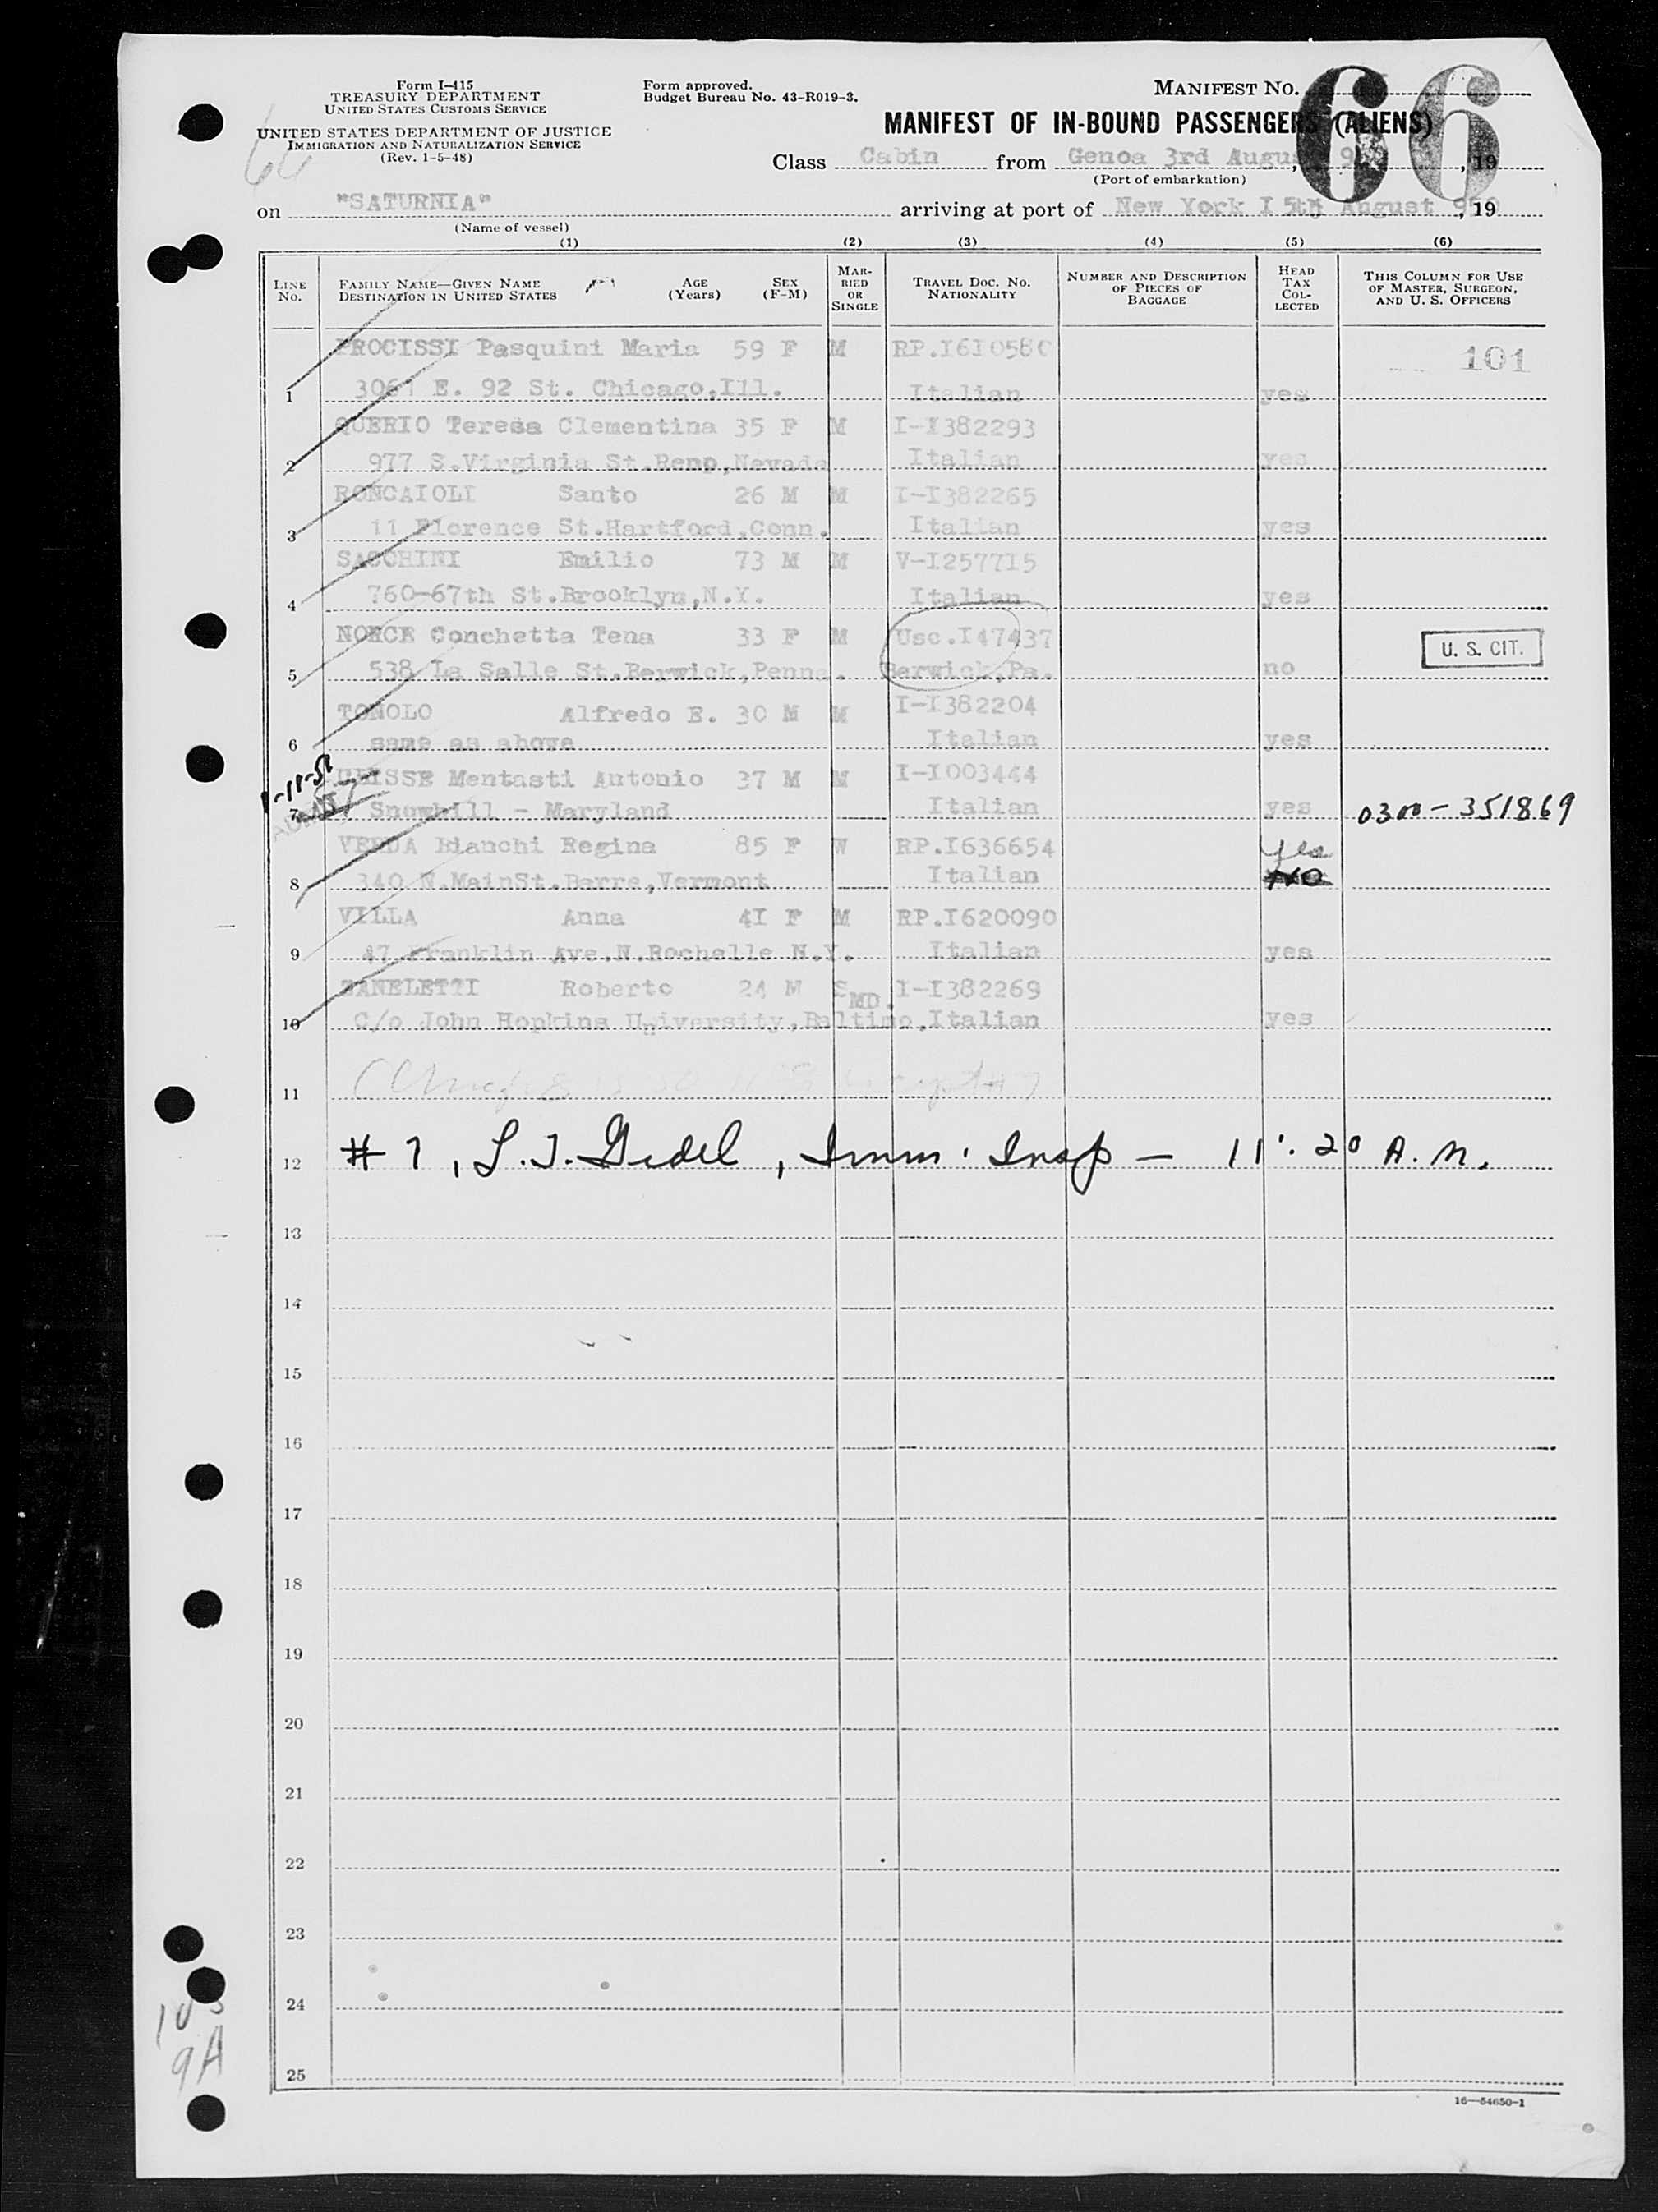 Form I-415
TREASURY DEPARTMENT
UNITED STATES CUSTOMS SERVICE
UNITED STATES DEPARTMENT OF JUSTICE
IMMIGRATION AND NATURALIZATION SERVICE
(Rev. 1-5-48)
Form approved.
Budget Bureau No. 43-R019-3.
MANIFEST NO.
66
MANIFEST OF IN-BOUND PASSENGERS (ALIENS)
Class Cabin from Genoa 3rd August, 19
(Port of embarkation)
on "SATURNIA" arriving at port of New York I5th August 950, 19
(Name of vessel)
(1) (2) (3) (4) (5) (6)
LINE No. FAMILY NAME—GIVEN NAME DESTINATION IN UNITED STATES AGE (Years) SEX (F-M) MARRIED OR SINGLE TRAVEL DOC. NO. NATIONALITY NUMBER AND DESCRIPTION OF PIECES OF BAGGAGE HEAD TAX COLLECTED THIS COLUMN FOR USE OF MASTER, SURGEON, AND U. S. OFFICERS
PROCISSI Pasquini Maria 59 F M RP.I6I0580 101
1 3061 E. 92 St. Chicago,Ill. Italian yes
QUERIO Teresa Clementina 35 F M I-I382293
2 977 S.Virginia St.Reno,Nevada Italian yes
RONCAIOLI Santo 26 M M I-I382265
3 11 Florence St.Hartford,Conn. Italian yes
SACCHINI Emilio 73 M M V-I257715
4 760-67th St.Brooklyn,N.Y. Italian yes
NOECE Conchetta Tena 33 F M Usc.I47437 U. S. CIT.
5 538 La Salle St.Berwick,Penna. Berwick,Pa. no
TONOLO Alfredo E. 30 M M I-I382204
6 same as above Italian yes
ULISSE Mentasti Antonio 37 M M I-I003444
7 Snowhill - Maryland Italian yes 0300-351869
VERDA Bianchi Regina 85 F W RP.I636654 yes
8 340 N.MainSt.Barre,Vermont Italian no
VILLA Anna 4I F M RP.I620090
9 47 Franklin Ave.N.Rochelle N.Y. Italian yes
ZANELETTI Roberto 24 M S I-I382269
10 C/o John Hopkins University,Baltimo, MD. Italian yes
11
12 # 7, L.J. Gidel, Imm. Insp — 11:20 A.M.
13
14
15
16
17
18
19
20
21
22
23
24
25
9A
16—54650-1